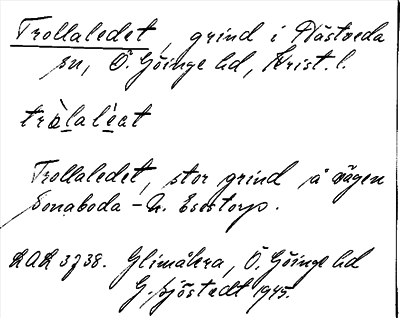 Trollaledet, grind i Hästveda
sn, Ö. Göinge hd, Krist. l.
tròlaléat
Trollaledet, stor grind på vägen
Sonaboda - N. Esestorp.
LAL 3738. Glimåkra, Ö. Göinge hd
G. Sjöstedt 1945.